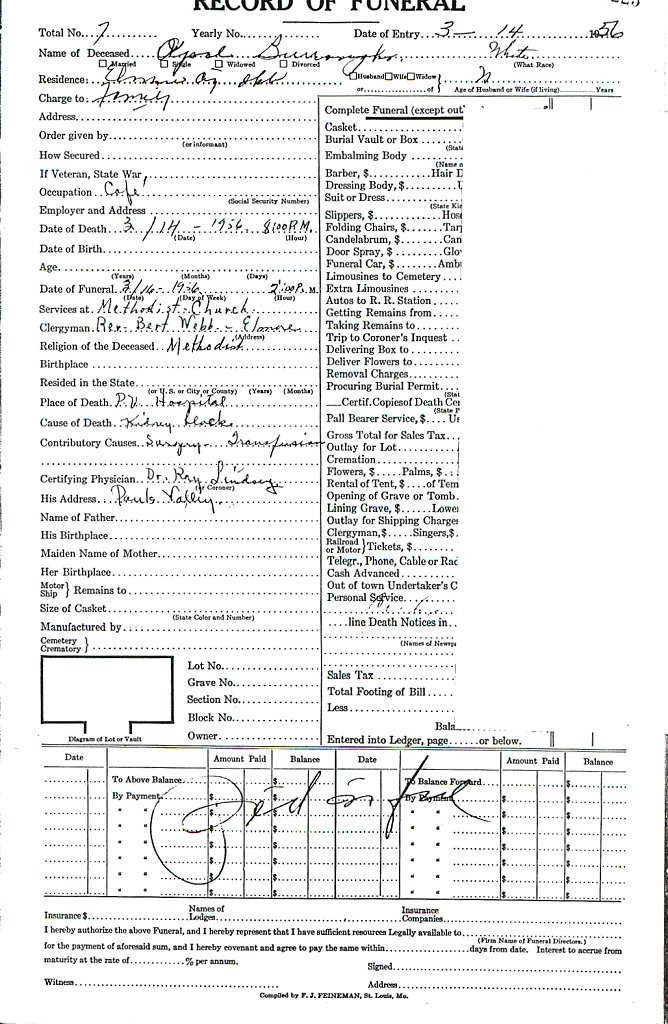 RECORD OF FUNERAL
Total No. 7 Yearly No. Date of Entry 3 — 14 1956
Name of Deceased Burroughs White
Married Single Widowed Divorced (What Race)
Residence: Husband Wife Widow
or Age of Husband or Wife (if living) Years
Charge to: family
Address
Order given by
(or informant)
How Secured
If Veteran, State War
Occupation Cafe
(Social Security Number)
Employer and Address
Date of Death 3/14 - 1956 8:00 P.M.
(Date) (Hour)
Date of Birth
Age
(Years) (Months) (Days)
Date of Funeral 3/16 - 1956 2:00 P. M.
(Date) (Day of Week) (Hour)
Services at Methodist Church
Clergyman Rev. Bert Webb - Elmore
(Address)
Religion of the Deceased Methodist
Birthplace
Resided in the State
(or U.S. or City or County) (Years) (Months)
Place of Death P.V. Hospital
Cause of Death Kidney block
Contributory Causes Surgery - Transfusion
Certifying Physician Dr. Ray Lindsey
(or Coroner)
His Address Pauls Valley
Name of Father
His Birthplace
Maiden Name of Mother
Her Birthplace
Motor Ship } Remains to
Size of Casket
(State Color and Number)
Manufactured by
Cemetery Crematory }
Lot No.
Grave No.
Section No.
Block No.
Owner
Diagram of Lot or Vault
Complete Funeral (except out
Casket
Burial Vault or Box
(Stat
Embalming Body
(Name o
Barber, $ Hair D
Dressing Body, $
Suit or Dress
(State Ki
Slippers, $ Hos
Folding Chairs, $ Tar
Candelabrum, $ Can
Door Spray, $ Glo
Funeral Car, $ Amb
Limousines to Cemetery
Extra Limousines
Autos to R. R. Station
Getting Remains from
Taking Remains to
Trip to Coroner's Inquest
Delivering Box to
Deliver Flowers to
Removal Charges
Procuring Burial Permit
(Stat
Certif. Copies of Death Ce
(State P
Pall Bearer Service, $ Us
Gross Total for Sales Tax
Outlay for Lot
Cremation
Flowers, $ Palms, $
Rental of Tent, $ of Tem
Opening of Grave or Tomb
Lining Grave, $ Lowe
Outlay for Shipping Charges
Clergyman, $ Singers, $
Railroad or Motor } Tickets, $
Telegr., Phone, Cable or Rad
Cash Advanced
Out of town Undertaker's C
Personal Service
line Death Notices in
(Names of Newsp
Sales Tax
Total Footing of Bill
Less
Bala
Entered into Ledger, page or below.
Date Amount Paid Balance Date Amount Paid Balance
To Above Balance $ To Balance Forward $
By Payment $ $ By Payment $ $
" " $ $ " " $ $
" " $ $ " " $ $
" " $ $ " " $ $
" " $ $ " " $ $
" " $ $ " " $ $
Paid in full
Insurance $ Names of Lodges Insurance Companies
I hereby authorize the above Funeral, and I hereby represent that I have sufficient resources Legally available to
(Firm Name of Funeral Directors.)
for the payment of aforesaid sum, and I hereby covenant and agree to pay the same within days from date. Interest to accrue from
maturity at the rate of % per annum.
Signed
Witness Address
Compiled by F. J. FEINEMAN, St. Louis, Mo.